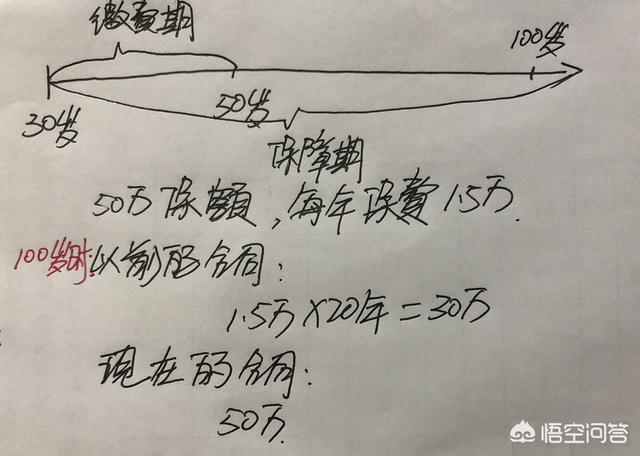 缴费期
100岁
30岁
50岁
保障期
50万保额，每年保费1.5万.
100岁时:以前的合同:
1.5万×20年=30万
现在的合同:
50万.
悟空问答